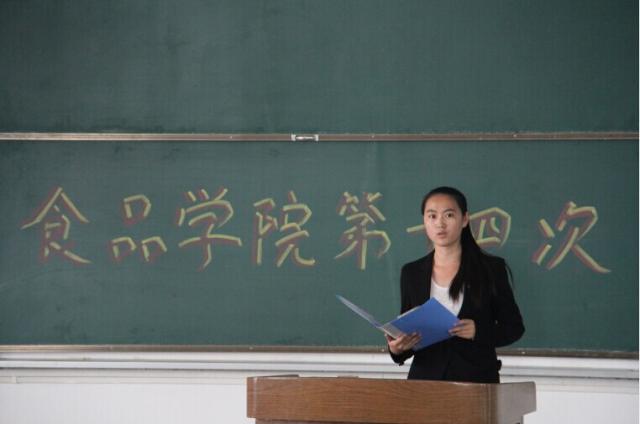 食品学院第十四次